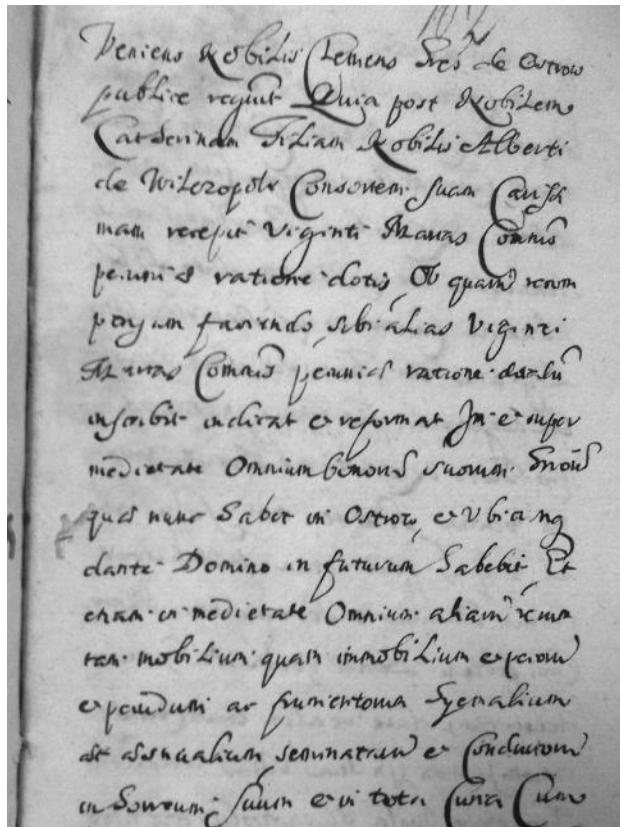 102
Veniens Nobilis Clemens hres de Ostrow
publice regnit Quia post Nobilem
Catherinam Filiam Nobilis Alberti
de Wilczopole Consortem suam Carissi
mam recepit Viginti Marcas Comnis
pecuniæ ratione dotis Ob quam
faciendo sibi alias Viginti
Marcas Comnis pecuniæ ratione
inscribit indicat et reformat In et super
medietate Omnium bonorum suorum
quæ nunc habet in Ostrow, et Ubicunq
dante Domino in futurum habebit Et
etiam in medietate Omnium aliarum rerum
tam mobilium quam immobilium
et pecudum ac frumentorum hyemalium
et æstivalium seminatarum et
in horreum suum et in tota Curia Cum